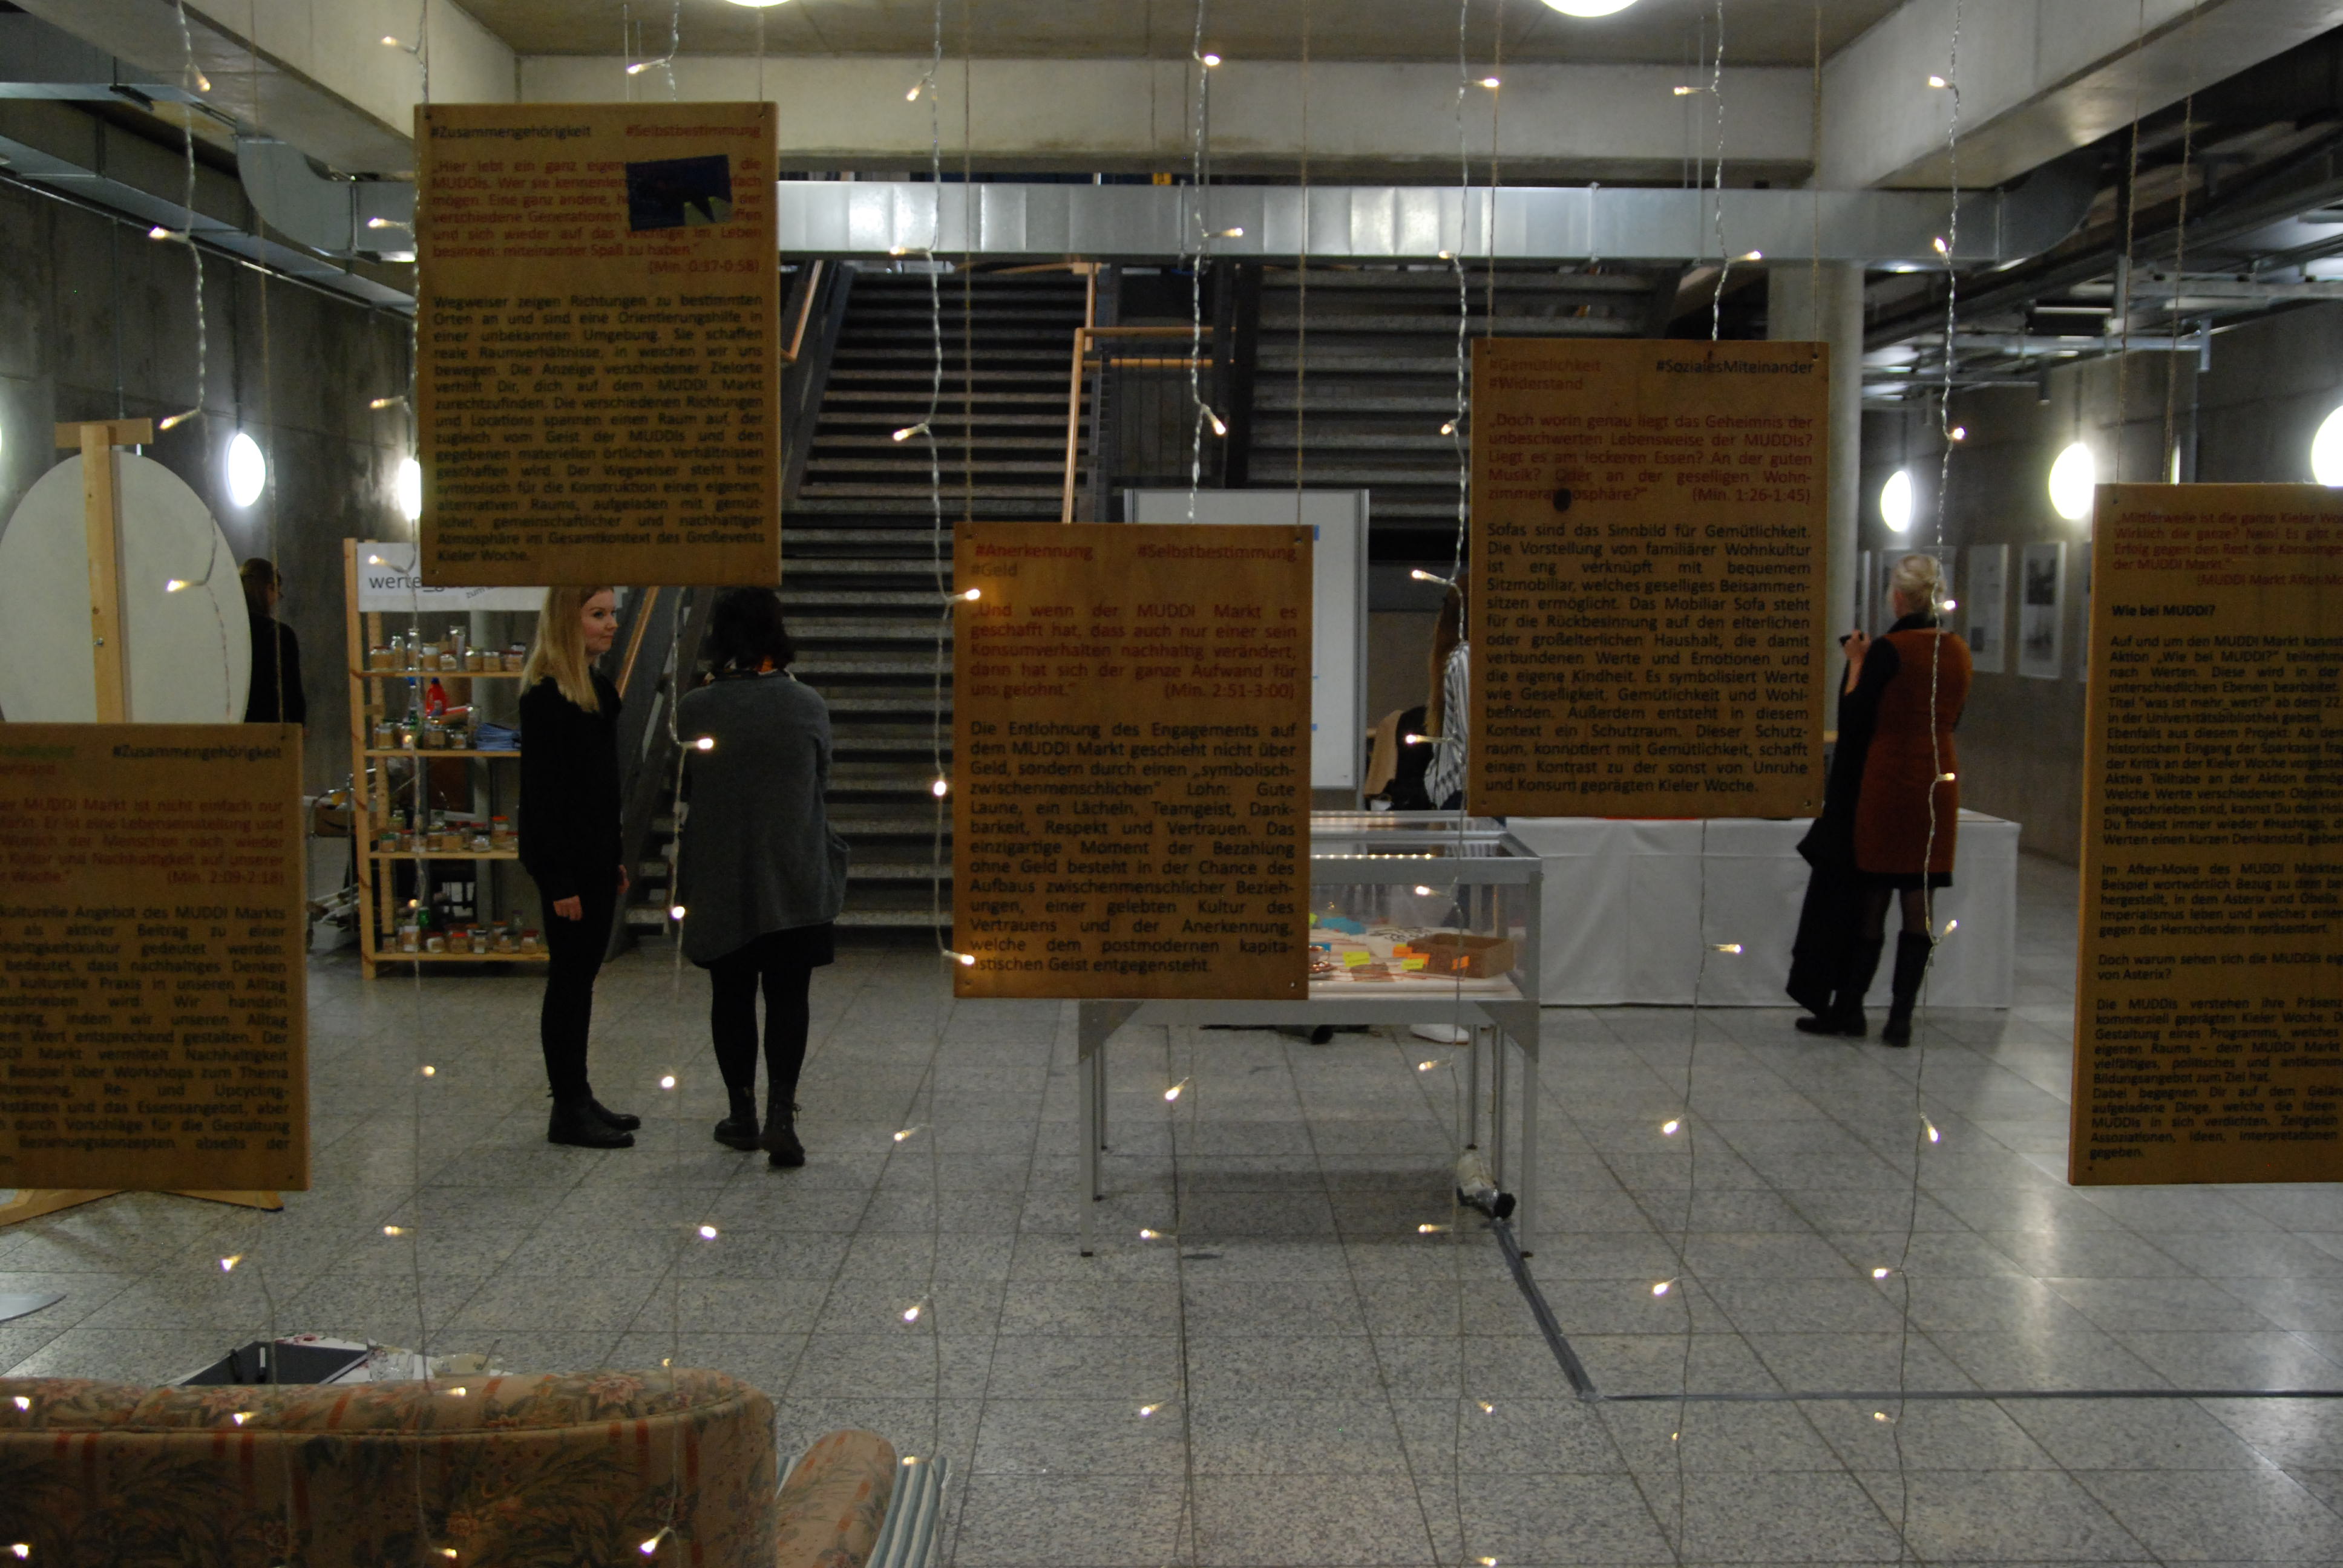 #Zusammengehörigkeit #Selbstbestimmung
„Hier lebt ein ganz eigen die
MUDDIs. Wer sie kennenler fach
mögen. Eine ganz andere, der
verschiedene Generationen
und sich wieder auf das im Leben
besinnen: miteinander Spaß zu haben."
(Min. 0:37-0:58)
Wegweiser zeigen Richtungen zu bestimmten
Orten an und sind eine Orientierungshilfe in
einer unbekannten Umgebung. Sie schaffen
reale Raumverhältnisse, in welchen wir uns
bewegen. Die Anzeige verschiedener Zielorte
verhilft Dir, dich auf dem MUDDI Markt
zurechtzufinden. Die verschiedenen Richtungen
und Locations spannen einen Raum auf, der
zugleich vom Geist der MUDDIs und den
gegebenen materiellen örtlichen Verhältnissen
geschaffen wird. Der Wegweiser steht hier
symbolisch für die Konstruktion eines eigenen,
alternativen Raums, aufgeladen mit gemüt-
licher, gemeinschaftlicher und nachhaltiger
Atmosphäre im Gesamtkontext des Großevents
Kieler Woche.
werte_
#Zusammengehörigkeit
MUDDI Markt ist nicht einfach nur
Markt. Er ist eine Lebenseinstellung und
Wunsch der Menschen nach wieder
Kultur und Nachhaltigkeit auf unserer
Woche." (Min. 2:09-2:18)
kulturelle Angebot des MUDDI Markts
als aktiver Beitrag zu einer
haltigkeitskultur gedeutet werden.
bedeutet, dass nachhaltiges Denken
kulturelle Praxis in unseren Alltag
eschrieben wird: Wir handeln
haltig, indem wir unseren Alltag
em Wert entsprechend gestalten. Der
DI Markt vermittelt Nachhaltigkeit
Beispiel über Workshops zum Thema
trennung, Re- und Upcycling-
kstätten und das Essensangebot, aber
durch Vorschläge für die Gestaltung
Beziehungskonzepten abseits der
#Anerkennung #Selbstbestimmung
#Geld
„Und wenn der MUDDI Markt es
geschafft hat, dass auch nur einer sein
Konsumverhalten nachhaltig verändert,
dann hat sich der ganze Aufwand für
uns gelohnt." (Min. 2:51-3:00)
Die Entlohnung des Engagements auf
dem MUDDI Markt geschieht nicht über
Geld, sondern durch einen „symbolisch-
zwischenmenschlichen" Lohn: Gute
Laune, ein Lächeln, Teamgeist, Dank-
barkeit, Respekt und Vertrauen. Das
einzigartige Moment der Bezahlung
ohne Geld besteht in der Chance des
Aufbaus zwischenmenschlicher Bezieh-
ungen, einer gelebten Kultur des
Vertrauens und der Anerkennung,
welche dem postmodernen kapita-
listischen Geist entgegensteht.
#Gemütlichkeit #SozialesMiteinander
#Widerstand
„Doch worin genau liegt das Geheimnis der
unbeschwerten Lebensweise der MUDDIs?
Liegt es am leckeren Essen? An der guten
Musik? Oder an der geselligen Wohn-
zimmeratmosphäre?" (Min. 1:26-1:45)
Sofas sind das Sinnbild für Gemütlichkeit.
Die Vorstellung von familiärer Wohnkultur
ist eng verknüpft mit bequemem
Sitzmobiliar, welches geselliges Beisammen-
sitzen ermöglicht. Das Mobiliar Sofa steht
für die Rückbesinnung auf den elterlichen
oder großelterlichen Haushalt, die damit
verbundenen Werte und Emotionen und
die eigene Kindheit. Es symbolisiert Werte
wie Geselligkeit, Gemütlichkeit und Wohl-
befinden. Außerdem entsteht in diesem
Kontext ein Schutzraum. Dieser Schutz-
raum, konnotiert mit Gemütlichkeit, schafft
einen Kontrast zu der sonst von Unruhe
und Konsum geprägten Kieler Woche.
„Mittlerweile ist die ganze Kieler Wo
Wirklich die ganze? Nein! Es gibt
Erfolg gegen den Rest der Konsumge
der MUDDI Markt."
(MUDDI Markt AfterMo
Wie bei MUDDI?
Auf und um den MUDDI Markt kanns
Aktion „Wie bei MUDDI?" teilnehm
nach Werten. Diese wird in der
unterschiedlichen Ebenen bearbeitet.
Titel "was ist mehr_wert?" ab dem 22.
in der Universitätsbibliothek geben.
Ebenfalls aus diesem Projekt: Ab de
historischen Eingang der Sparkasse fra
der Kritik an der Kieler Woche vorgeste
Aktive Teilhabe an der Aktion ermög
Welche Werte verschiedenen Objekte
eingeschrieben sind, kannst Du den Ho
Du findest immer wieder #Hashtags, d
Werten einen kurzen Denkanstoß gebe
Im After-Movie des MUDDI Marktes
Beispiel wortwörtlich Bezug zu dem be
hergestellt, in dem Asterix und Obelix
Imperialismus leben und welches eine
gegen die Herrschenden repräsentiert.
Doch warum sehen sich die MUDDIs eig
von Asterix?
Die MUDDIs verstehen ihre Präsenz
kommerziell geprägten Kieler Woche. D
Gestaltung eines Programms, welches
eigenen Raums – dem MUDDI Markt
vielfältiges, politisches und antikomm
Bildungsangebot zum Ziel hat.
Dabei begegnen Dir auf dem Gelän
aufgeladene Dinge, welche die Ideen
MUDDIs in sich verdichten. Zeitgleich
Assoziationen, Ideen, Interpretationen
gegeben.